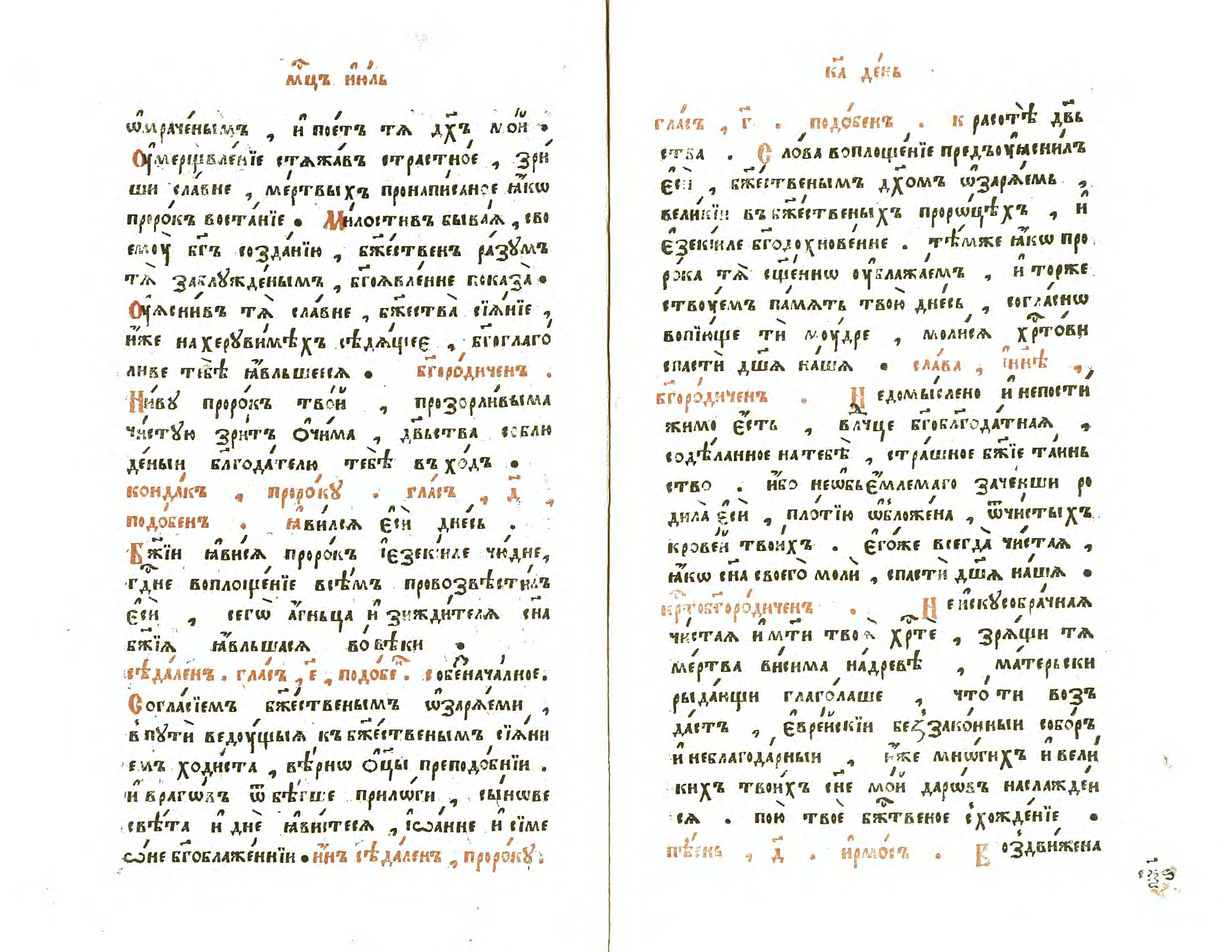 мц҃ъ і҆ю́ль
ѡ҆мраче́нымъ , и҆ пое́тъ тѧ̀ дх҃ъ мо́й .
Оу҆мерщвле́нїе стѧжа́въ стра́стное , зрѝ
ши сла́вне , ме́ртвыхъ пронаписа́ное ꙗ҆́кѡ
проро́къ воста́нїе . Ми́лостивъ быва́ѧ , сво
емоу̀ бг҃ъ созда́нїю , бж҃е́ственъ ра́зумъ
тѧ̀ заблужде́нымъ , бг҃оѧвле́нне показа̀ .
Оу҆ѧсни́въ тѧ̀ сла́вне , бж҃ества̀ сїѧ́нїе ,
и҆́же на херуви́мѣхъ сѣдѧ́щеє , бг҃оглаго́
ливе тебѣ̀ ꙗ҆́вльшеесѧ . бг҃оро́диченъ .
Ни́ву проро́къ тво́й , прозорли́выма
чи́стую зри́тъ ѻ҆чи́ма , дв҃ьства соблю
де́ныи бл҃года́телю тебѣ̀ вхо́дъ .
конда́къ , проро́ку . гла́съ , д҃
подо́бенъ . ꙗ҆ви́лсѧ є҆сѝ дне́сь .
Бж҃їи ꙗ҆ви́сѧ проро́къ і҆єзекі́иле чю́дне,
гд҃не воплоще́нїе всѣ́мъ провозвѣсти́лъ
є҆сѝ , сегѡ̀ а҆́гньца и҆ зижди́телѧ сн҃а
бж҃їѧ ꙗ҆́вльшасѧ во вѣ́ки .
сѣда́ленъ . гла́съ , є҃ , подо́бе . собезнача́лное.
Согла́сїемъ бж҃е́ственымъ ѡ҆заря́еми ,
в пути̑ ведоу́щыѧ къ бж҃е́ственымъ сїѧ́ни
емъ ходи́ста , вѣ́рнѡ ѻ҆ц҃ы преподо́бнїи .
и҆ врагѡ́въ ѿбѣ́гше прило́ги , сы́нове
свѣ́та и҆ днѐ ꙗ҆ви́стесѧ , і҆ѡа́нне и҆ сі́ме
ѡ́не бг҃облаже́ннїи . и҆́нъ сѣда́ленъ , проро́ку.
ка҃ де́нь
гла́съ , г҃ . подо́бенъ . красотѣ̀ дв҃ь
ства . Сло́ва воплоще́нїе предъоу҆ѧсни́лъ
є҆сѝ , бж҃е́ственымъ дх҃омъ ѡ҆заря́емь ,
вели́кїи въ бж҃е́ственыхъ проро́цѣхъ , и҆
є҆зекі́иле бг҃одохнове́нне . тѣ́мже ꙗ҆́кѡ про
ро́ка тѧ̀ сщ҃е́ннѡ оу҆блажа́емъ , и҆ торже
ствоу́емъ па́мѧть твою̀ дне́сь , согла́снѡ
вопїю́ще тѝ моу́дре , моли́сѧ хр҃то́ви
спастѝ дш҃а на́шѧ . сла́ва , і҆ нн҃ѣ ,
бг҃оро́диченъ . Недомы́слено и҆ непости
жи́мо є҆́сть , влч҃це бг҃облгода́тная ,
содѣ́ланное на тебѣ̀ , стра́шное бж҃їе та́инь
ство . и҆́бо неѡбье́млемаго заче́нши ро
дила̀ є҆сѝ , пло́тїю ѡ҆бложе́на , ѿ чи́стыхъ
крове́й твои́хъ . є҆го́же всегда̀ чи́стая ,
ꙗ҆́кѡ сн҃а своего̀ молѝ , спастѝ дш҃а на́шѧ .
кр҃тобг҃оро́диченъ . Неискусобра́чная
чи́стая и҆ мт҃и твоѧ̀ хр҃те , зря́щи тѧ
ме́ртва ви́сима на́ древѣ , ма́терьски
рыда́ющи глаго́лаше , что́ ти воз
да́стъ , є҆вре́йскїи беззако́нныи собо́ръ
и҆ неблагода́рныи , и҆́же мно́гихъ и҆ вели́
кихъ твои́хъ сн҃е мо́й даро́въ наслажде́и
сѧ . пою̀ твоѐ бж҃твеное схожде́нїе .
пѣ́снь , д҃ . і҆рмо́съ . Воздви́жена